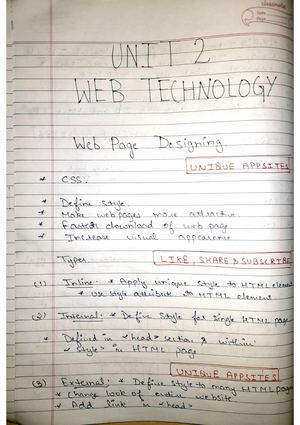 classmate
Date
Page
UNIT 2
WEB TECHNOLOGY
Web Page Designing
UNIQUE APPSITES
* CSS.
* Define style.
* Make web pages more attractive
* Fastest download of web page
* Increase visual appearence
Types
LIKE, SHARE & SUBSCRIBE
(1) Inline: * Apply unique style to HTML element
* Use style attribute to HTML element
(2) Internal: * Define Style for single HTML page
* Defined in <head> section & within
<style> in HTML page
UNIQUE APPSITES
(3) External: * Define style to many HTML pages
* Change look of entire website
* Add link in <head>